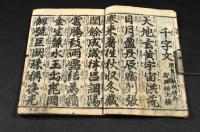 千字文
天地玄黃宇宙洪荒
日月盈昃辰宿列張
寒來暑往秋收冬藏
閏餘成歲律呂調陽
雲騰致雨露結爲霜
金生麗水玉出崑岡
劍號巨闕珠稱夜光